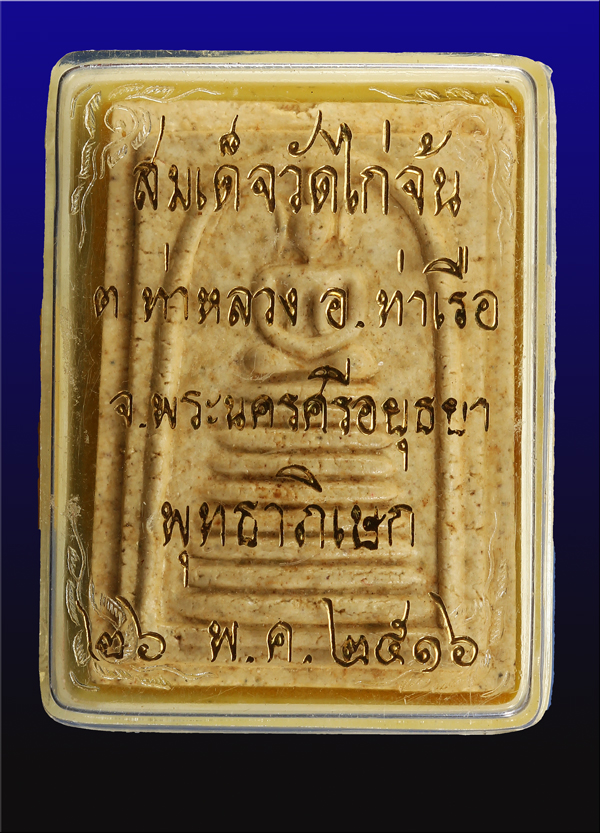 สมเด็จวัดไก่จ้น
ต.ท่าหลวง อ.ท่าเรือ
จ.พระนครศรีอยุธยา
พุทธาภิเษก
๒๖ พ.ค.๒๕๑๖